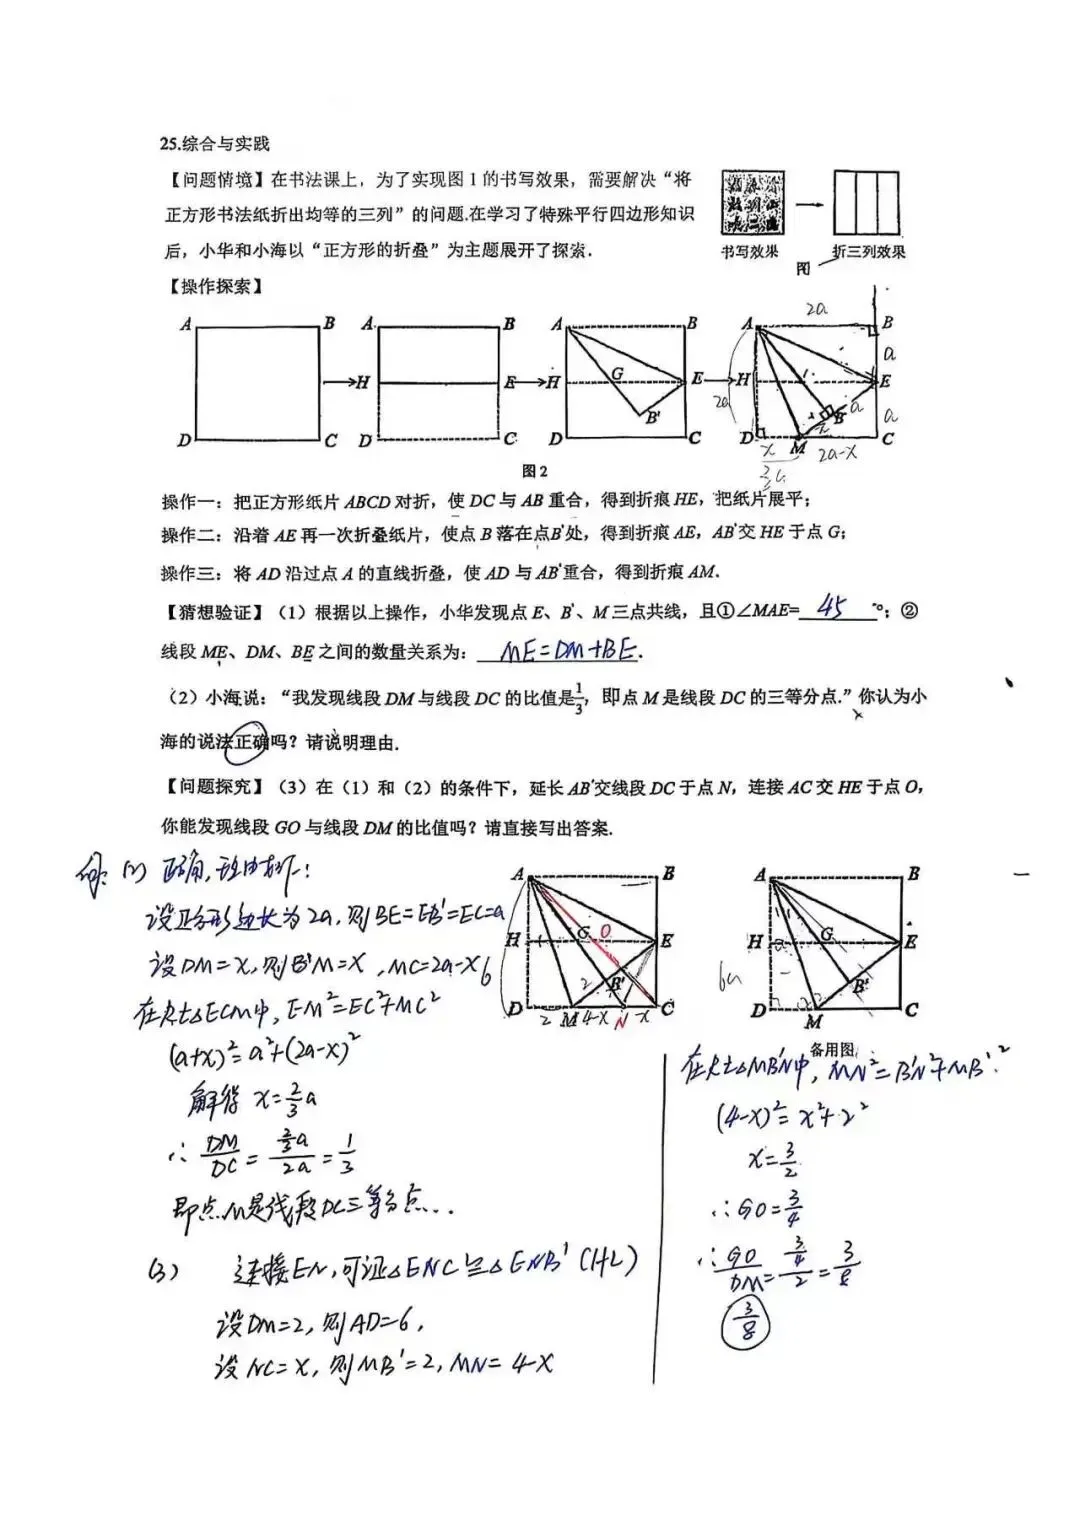 25.综合与实践
【问题情境】在书法课上，为了实现图 1 的书写效果，需要解决“将
正方形书法纸折出均等的三列”的问题.在学习了特殊平行四边形知识
后，小华和小海以“正方形的折叠”为主题展开了探索.
书写效果
折三列效果
图
【操作探索】
A B A B A B A B
H E H E H E
G
B' B
D C D C D C D M C
2a
a
a
2a
a
x
x
2a-x
图2
操作一：把正方形纸片 ABCD 对折，使 DC 与 AB 重合，得到折痕 HE，把纸片展平；
操作二：沿着 AE 再一次折叠纸片，使点 B 落在点B'处，得到折痕 AE，AB'交 HE 于点 G；
操作三：将 AD 沿过点 A 的直线折叠，使 AD 与 AB'重合，得到折痕 AM.
【猜想验证】（1）根据以上操作，小华发现点 E、B'、M 三点共线，且①∠MAE= 45 °；②
线段 ME、DM、BE 之间的数量关系为： ME=DM+BE.
（2）小海说：“我发现线段 DM 与线段 DC 的比值是1/3，即点 M 是线段 DC 的三等分点.”你认为小
海的说法正确吗？请说明理由.
【问题探究】（3）在（1）和（2）的条件下，延长 AB'交线段 DC 于点 N，连接 AC 交 HE 于点 O，
你能发现线段 GO 与线段 DM 的比值吗？请直接写出答案.
(2) 正确，理由如下：
设正方形边长为2a，则BE=EB'=EC=a
设DM=x，则B'M=x，MC=2a-x
在Rt△ECM中，EM²=EC²+MC²
(a+x)²=a²+(2a-x)²
解得 x=2/3a
∴ DM/DC = 2/3a/2a = 1/3
即点M是线段DC三等分点..
(3) 连接EN，可证△ENC≌△ENB'(HL)
设DM=2，则AD=6，
设NC=x，则MB'=2，MN=4-x
A B
H G O E
6
2
B'
D 2 M 4-x N x C
A B
H G E
6a
B'
D M C
备用图
在Rt△MB'N中，MN²=B'N²+MB'²
(4-x)²=x²+2²
x=3/2
∴GO=3/4
∴GO/DM=3/4/2=3/8
3/8